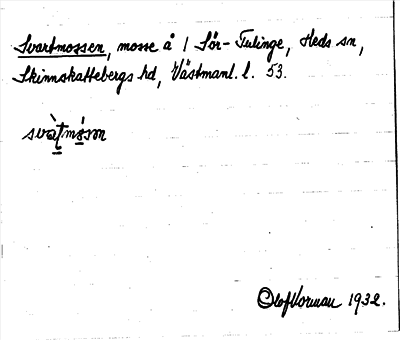 Svartmossen, mosse å 1 Sör-Tulinge, Heds sn,
Skinnskattebergs hd, Västmanl. l. 53.
svàtmósən
Olof Vorman 1932.